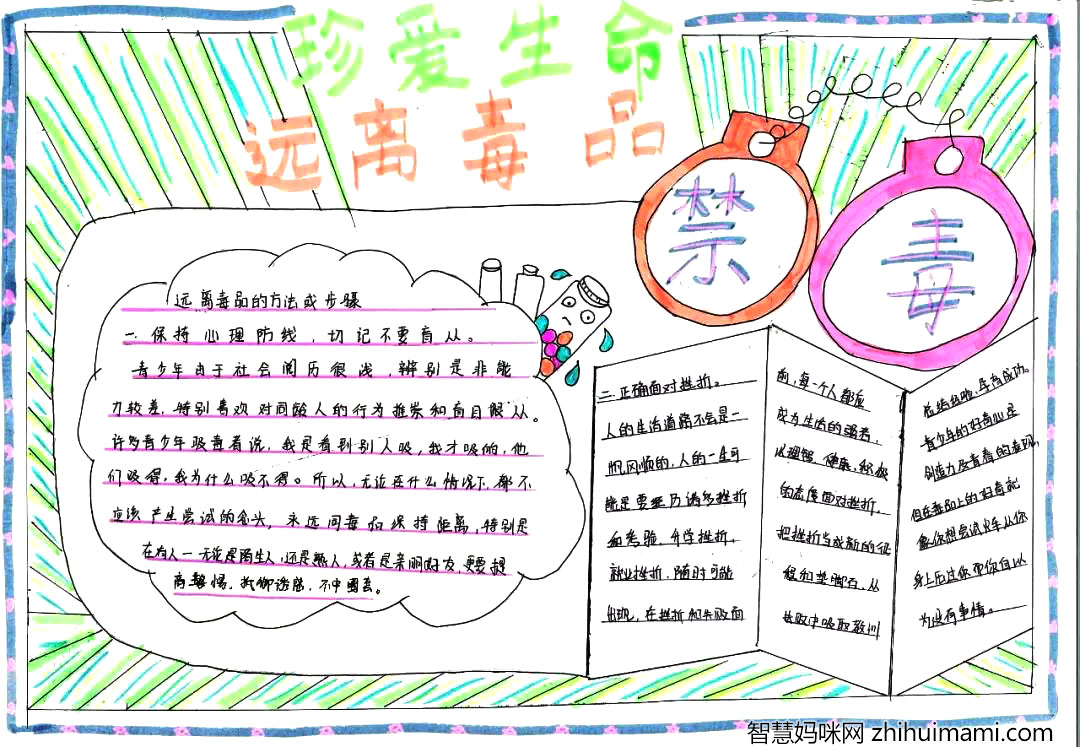 珍爱生命
远离毒品
禁
毒
远离毒品的方法或步骤
一.保持心理防线，切记不要盲从。
青少年由于社会阅历很浅，辨别是非能
力较差，特别喜欢对同龄人的行为推崇和盲目跟从。
许多青少年吸毒者说，我是看到别人吸，我才吸的，他
们吸得，我为什么吸不得。所以，无论在什么情况下，都不
应该产生尝试的念头，永远同毒品保持距离，特别是
在有人一无论是陌生人，还是熟人，或者是亲朋好友，更要提
高警惕，抵御诱惑，不中圈套。
二.正确面对挫折。
人的生活道路不会是一
帆风顺的，人的一生可
能是要经历诸多挫折
和考验，升学挫折，
就业挫折，随时可能
出现，在挫折和失败面
前，每一个人都应
成为生活的强者，
以理智、健康、积极
的态度面对挫折，
把挫折当成新的征
程和垫脚石，从
失败中吸取教训
总结经验，走向成功。
青少年的好奇心是
创造力及青春的表现，
但在毒品上的好奇就
像你想尝试火车从你
身上压过你而你自以
为没有事情。
智慧妈咪网 zhihuimami.com